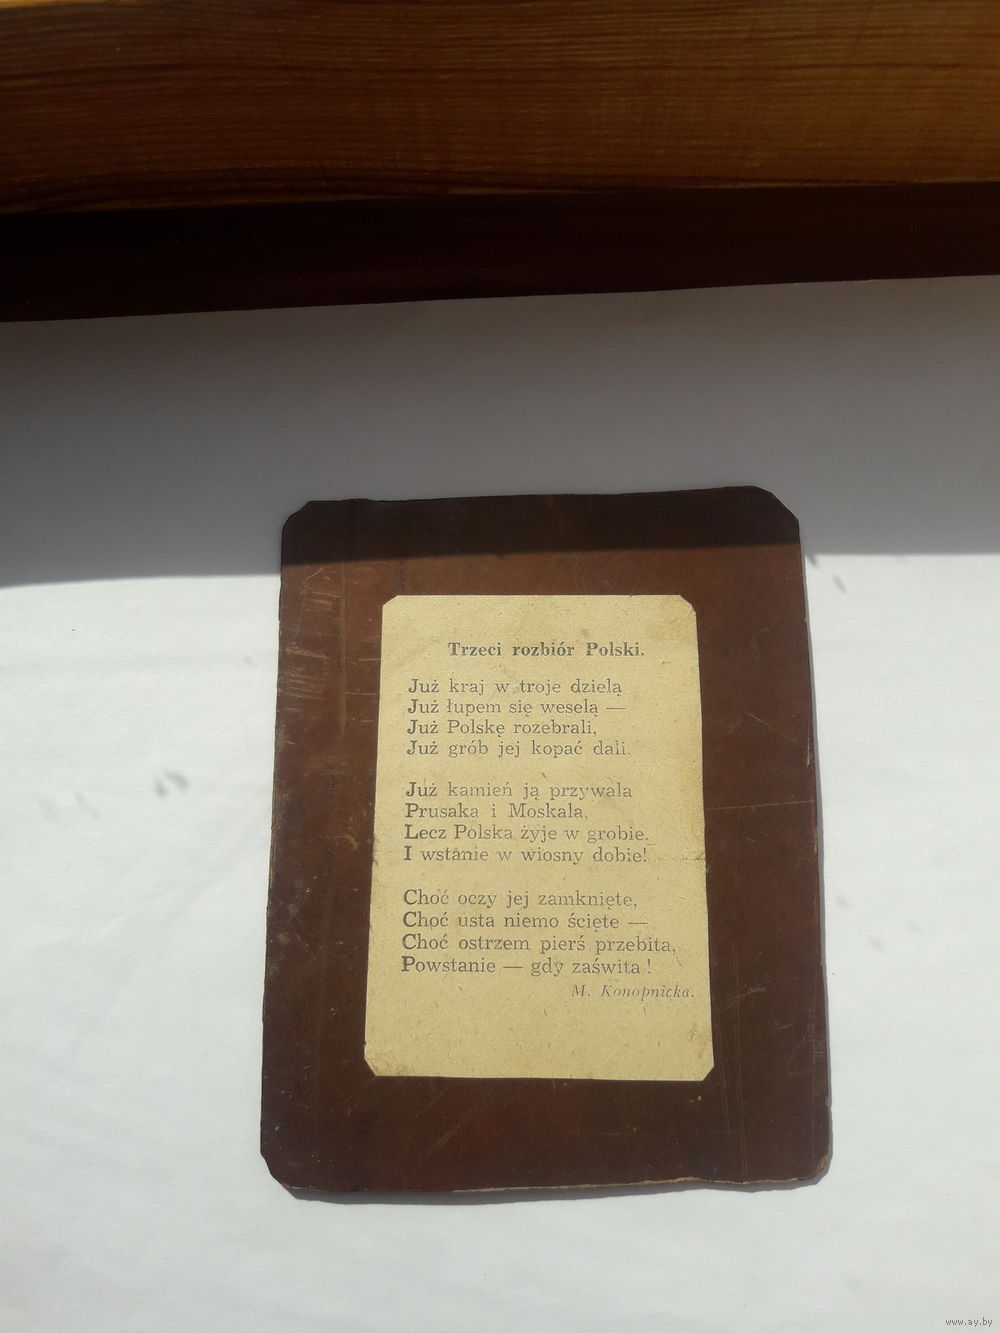 Trzeci rozbiór Polski.
Już kraj w troje dzielą
Już łupem się weselą —
Już Polskę rozebrali,
Już grób jej kopać dali.
Już kamień ją przywala
Prusaka i Moskala,
Lecz Polska żyje w grobie
I wstanie w wiosny dobie!
Choć oczy jej zamknięte,
Choć usta niemo ścięte —
Choć ostrzem pierś przebita,
Powstanie — gdy zaświta !
M. Konopnicka.
www.ay.by